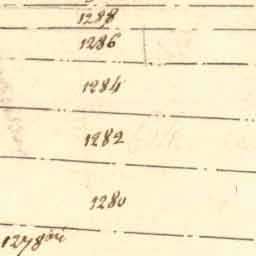 1288
1286
1284
1282
1280